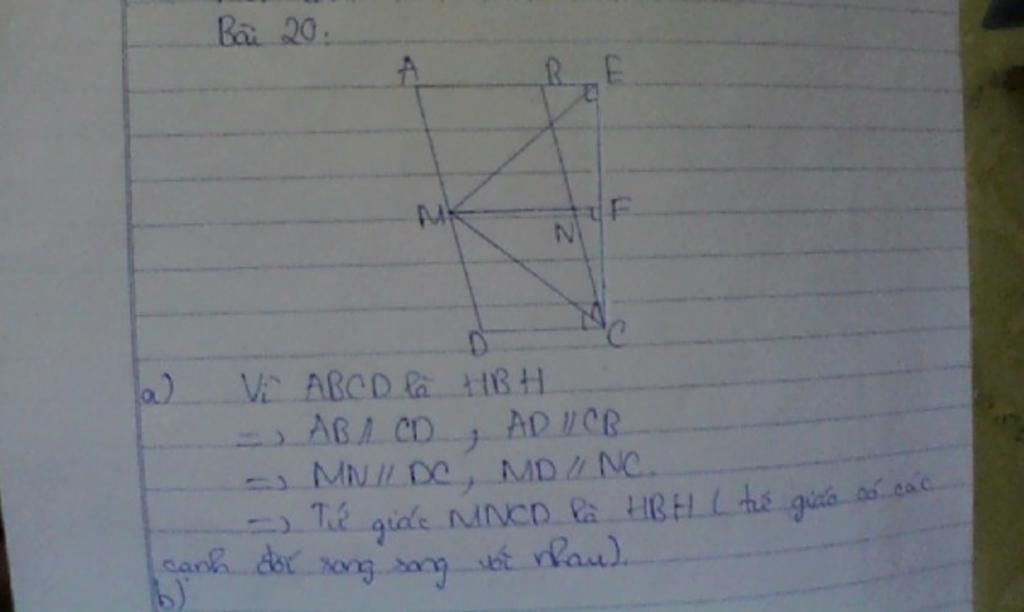 Bài 20:
A B E
M N F
D C
a) Vì ABCD là HBH
=> AB // CD , AD // CB
=> MN // DC, MD // NC.
=> Tứ giác MNCD là HBH ( tứ giác có các
cạnh đối song song với nhau).
b)